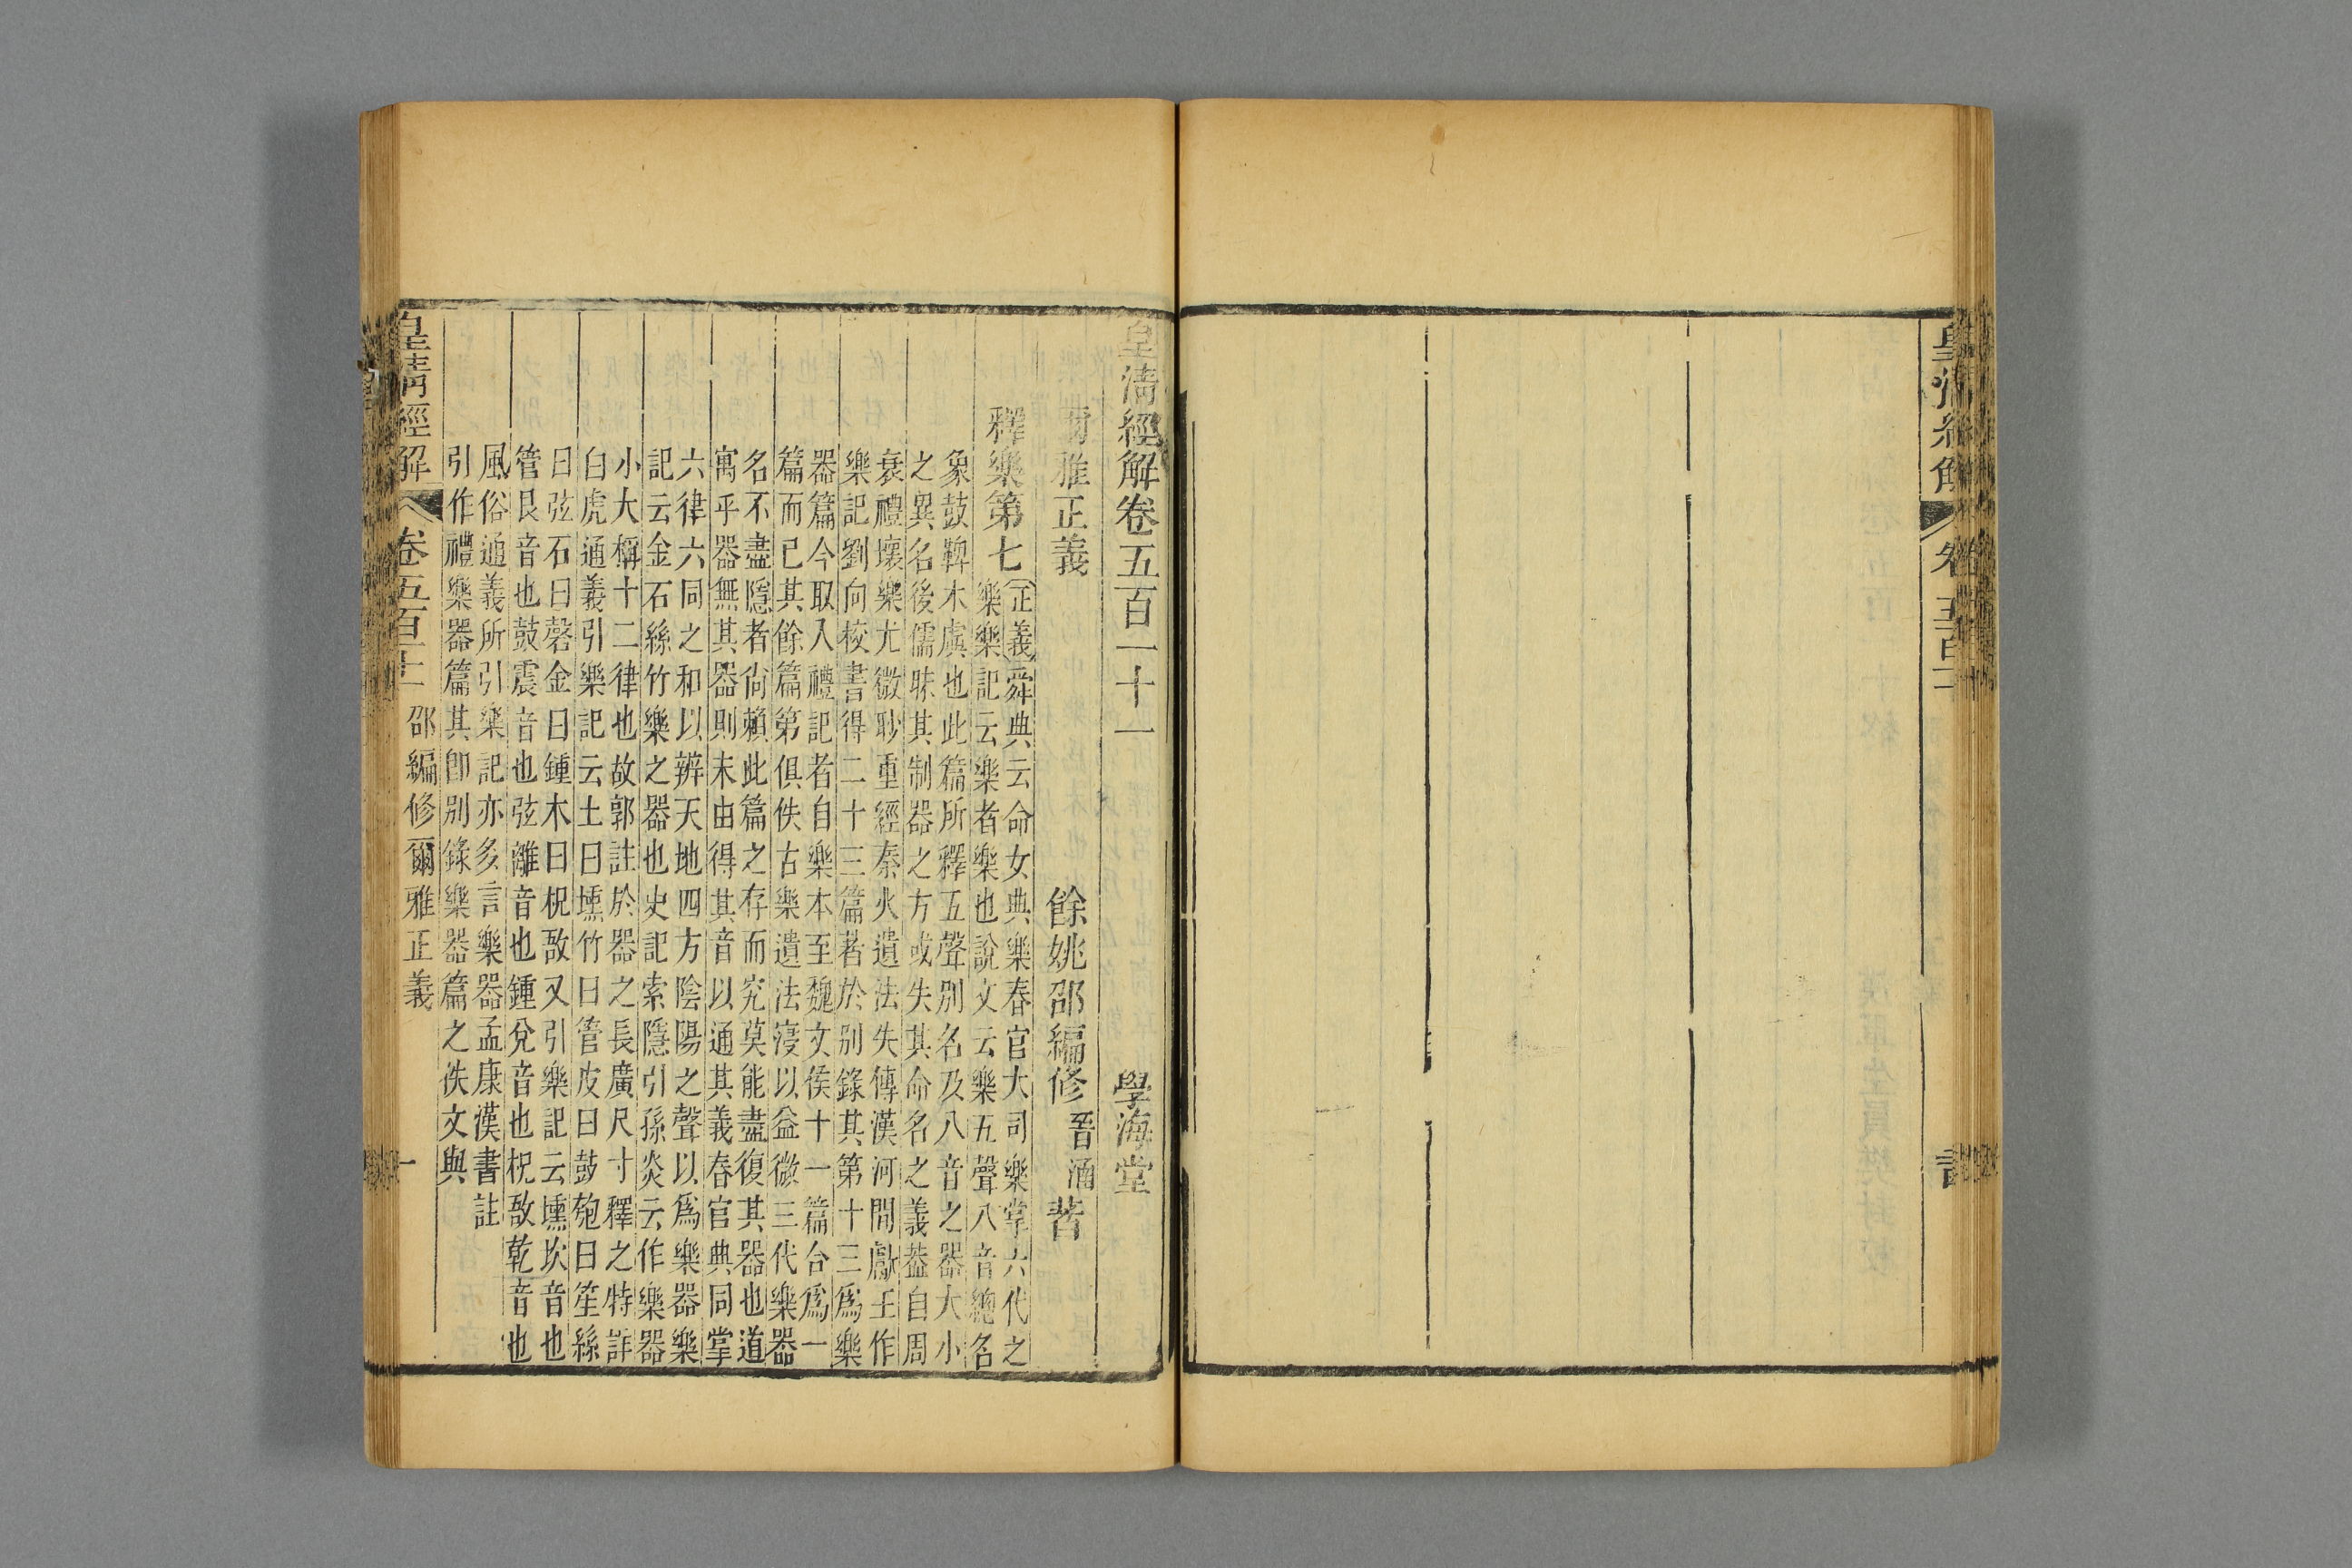 皇清經解
皇清經解卷五百一十一
學海堂
爾雅正義
餘姚邵編修晉涵著
釋樂第七
正義舜典云命女典樂春官大司樂掌六代之
樂樂記云樂者樂也說文云樂五聲八音總名
象鼓鞞木虡也此篇所釋五聲別名及八音之器大小
之異名後儒昧其制器之方或失其命名之義葢自周
衰禮壞樂尤微眇重經秦火遺法失傳漢河間獻王作
樂記劉向校書得二十三篇著於別錄其第十三爲樂
器篇今取入禮記者自樂本至魏文侯十一篇合爲一
篇而已其餘篇第俱佚古樂遺法寖以益微三代樂器
名不盡隱者尙賴此篇之存而究莫能盡復其器也道
寓乎器無其器則末由得其音以通其義春官典同掌
六律六同之和以辨天地四方陰陽之聲以爲樂器樂
記云金石絲竹樂之器也史記索隱引孫炎云作樂器
小大稱十二律也故郭註於器之長廣尺寸釋之特詳
白虎通義引樂記云土曰壎竹曰管皮曰鼓匏曰笙絲
曰弦石曰磬金曰鍾木曰柷敔又引樂記云壎坎音也
管艮音也鼓震音也弦離音也鍾兌音也柷敔乾音也
風俗通義所引樂記亦多言樂器孟康漢書註
引作禮樂器篇其卽別錄樂器篇之佚文與
皇清經解
卷五百十一
邵編修爾雅正義
一